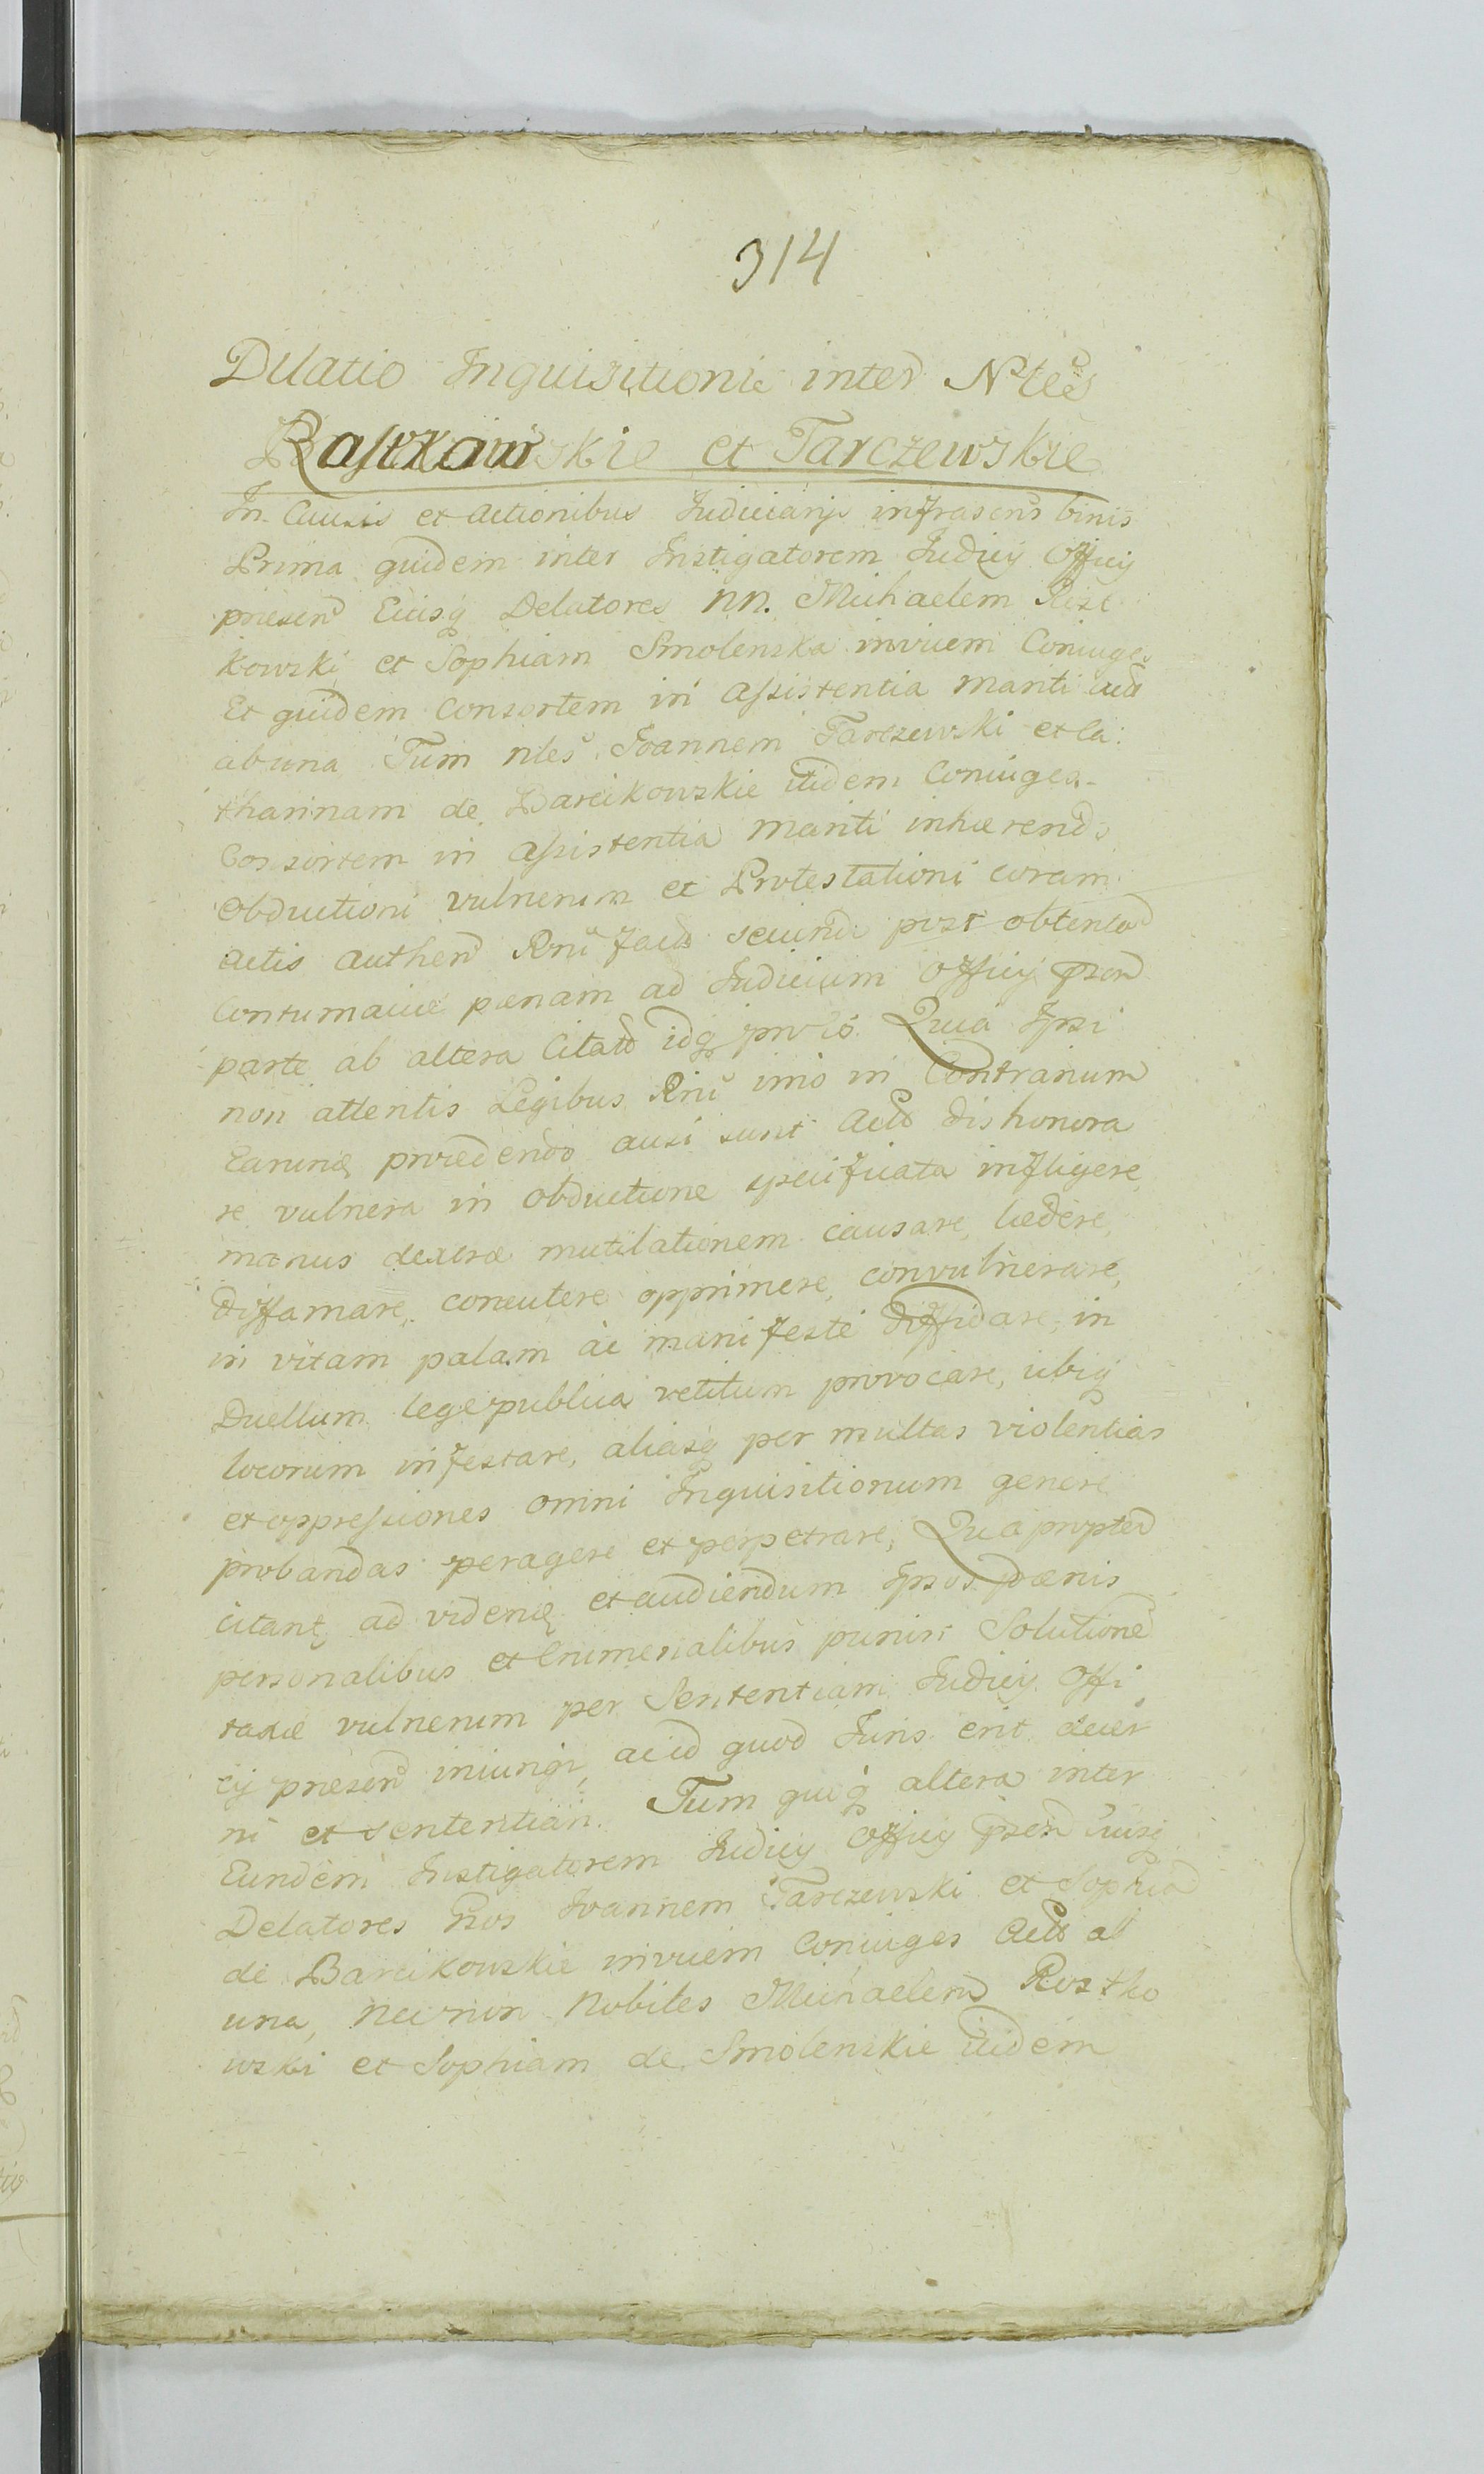 314
Dilatio Inquisitionis inter Nles
Rastkowskie et Tarczewskie
In Causis et Actionibus Judiciarijs infrascrs binis
Prima quidem inter Instigatorem Judicij Officij
præsen Eiusq Delatores NN. Michaelem Rost
kowski et Sophiam Smolenska invicem Coniuges
Et quidem Consortem in Assistentia Mariti
ab una Tum nles Joannem Tarczewski et Ca:
tharinam de Barcikowskie itidem Coniuges
Consortem in Assistentia Mariti inhærend
Obductioni vulnerum et Protestationi coram
Actis Authen Rni secunda post obtenta
Contumaciæ pænam ad Judicium Officij præsen
parte ab altera Citato idq Quia Ipsi
non attentis Legibus Rni imo in Contrarium
Earunq procedendo ausi sunt Acto dishonora
re vulnera in Obductione specificata infligere,
manus dextræ mutilationem causare, lædere,
diffamare, concutere opprimere, convulnerare,
in vitam palam ac manifeste diffidare, in
Duellum lege publica vetitum provocare, ubiq
locorum infestare, aliasq per multas violentias
et oppressiones omni Inquisitionum genere
probandas peragere et perpetrare, Quapropter
citant ad videnq et audiendum Ipsos pænis
personalibus et Crimenalibus puniri Solutione
taxæ vulnerum per Sententiam Judicij Offi
cij præsen iniungi, ac id quod Juris erit decer
ni et sententiari. Tum quoq altera inter
Eundem Instigatorem Judicij Officij præsen Eiusq
Delatores Gsos Joannem Tarczewski et Sophia
de Barcikowskie invicem Coniuges Acto ab
una, Necnon Nobiles Michaelem Rostko
wski et Sophiam de Smolenskie itidem